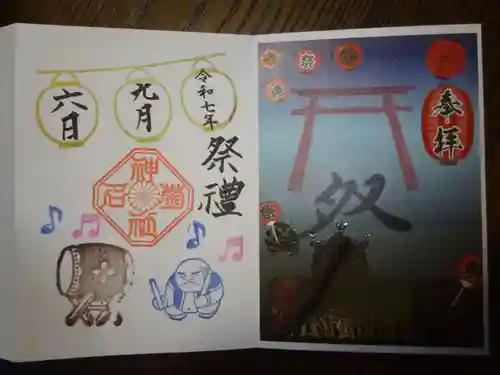 令和七年
九月
六日
祭禮
奉拝
祭